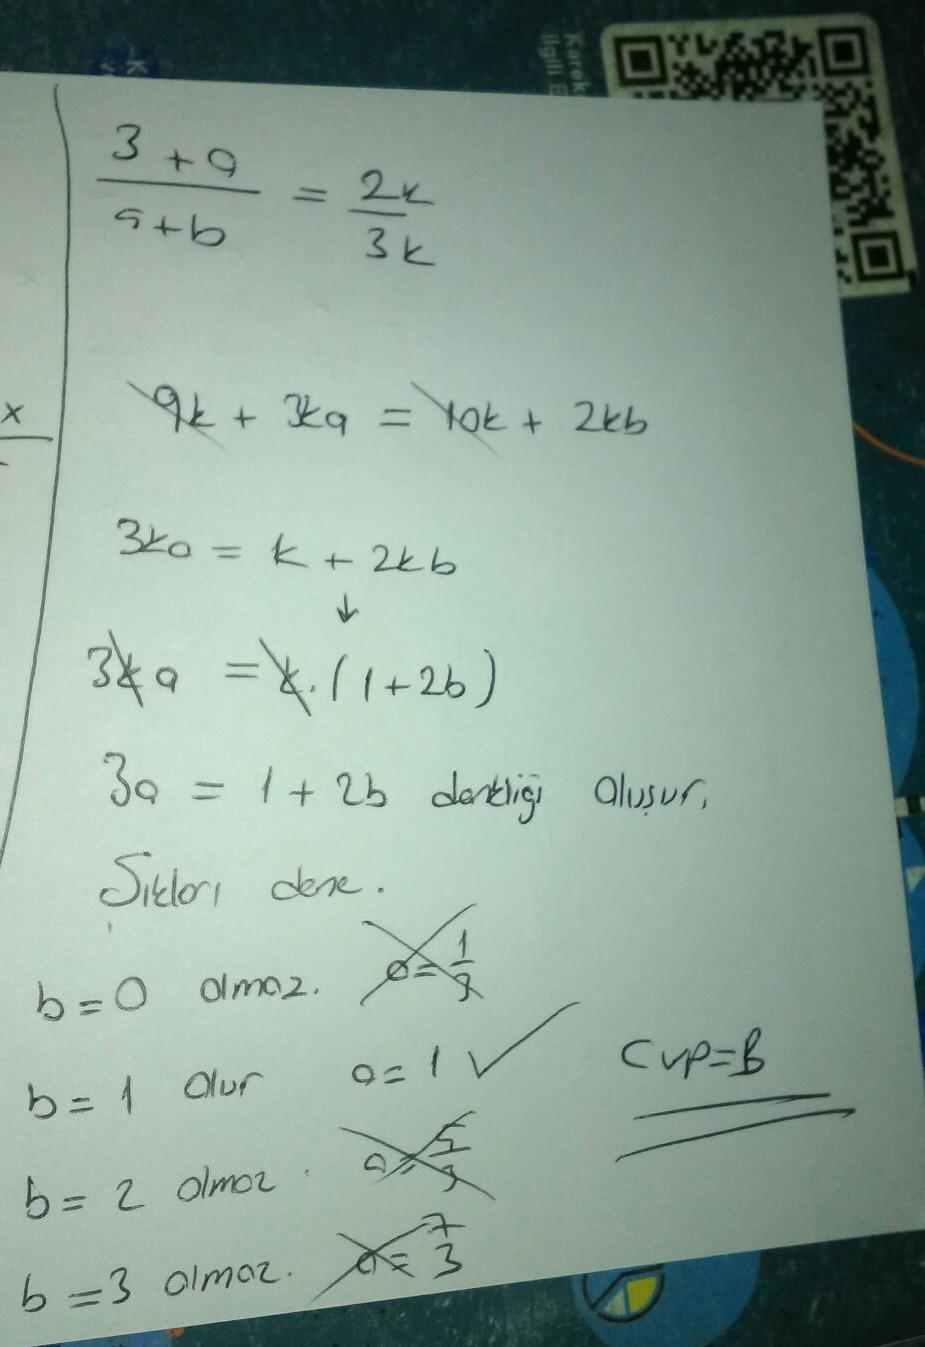 Karek
ilgili E
3 + a
a + b
= 2k
3k
x
9k + 3ka = 10k + 2kb
3ka = k + 2kb
↓
3ka = k.(1+2b)
3a = 1 + 2b denkliği oluşur.
Şıkları dene.
b = 0 olmaz. a = 1/3
b = 1 olur a = 1 ✓
Cvp = B
b = 2 olmaz. a = 5/3
b = 3 olmaz. a = 7/3